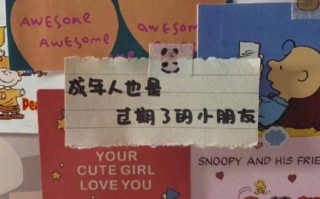 AWESOME
AWESOME
AWESOME
成年人也是
过期了的小朋友
YOUR
CUTE GIRL
LOVE YOU
SNOOPY AND HIS FRIE